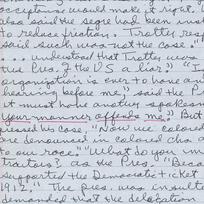 acceptance would make it right.
also said the segre had been inst
to reduce friction. Trotter resp
said such was not the case.
understand that Trotter
of the U S a lar?" "I
organization is ever to have an
hearing before me," said the P
it must have another spokesm
Your manner offends me." But
pressed his case. "Now we colored
are denounced in colored chu
to our race." "What do you m
traitors? asked the Pres. "Beca
supported the Democratic ticket
1912." The pres. was insulte
demanded that the delegation